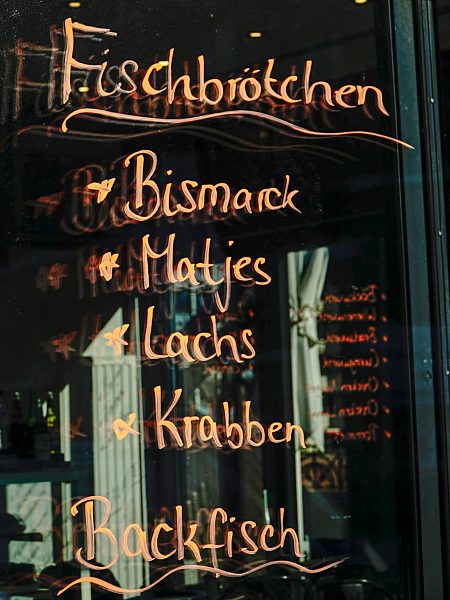 Fischbrötchen
Bismarck
Matjes
Lachs
Krabben
Backfisch